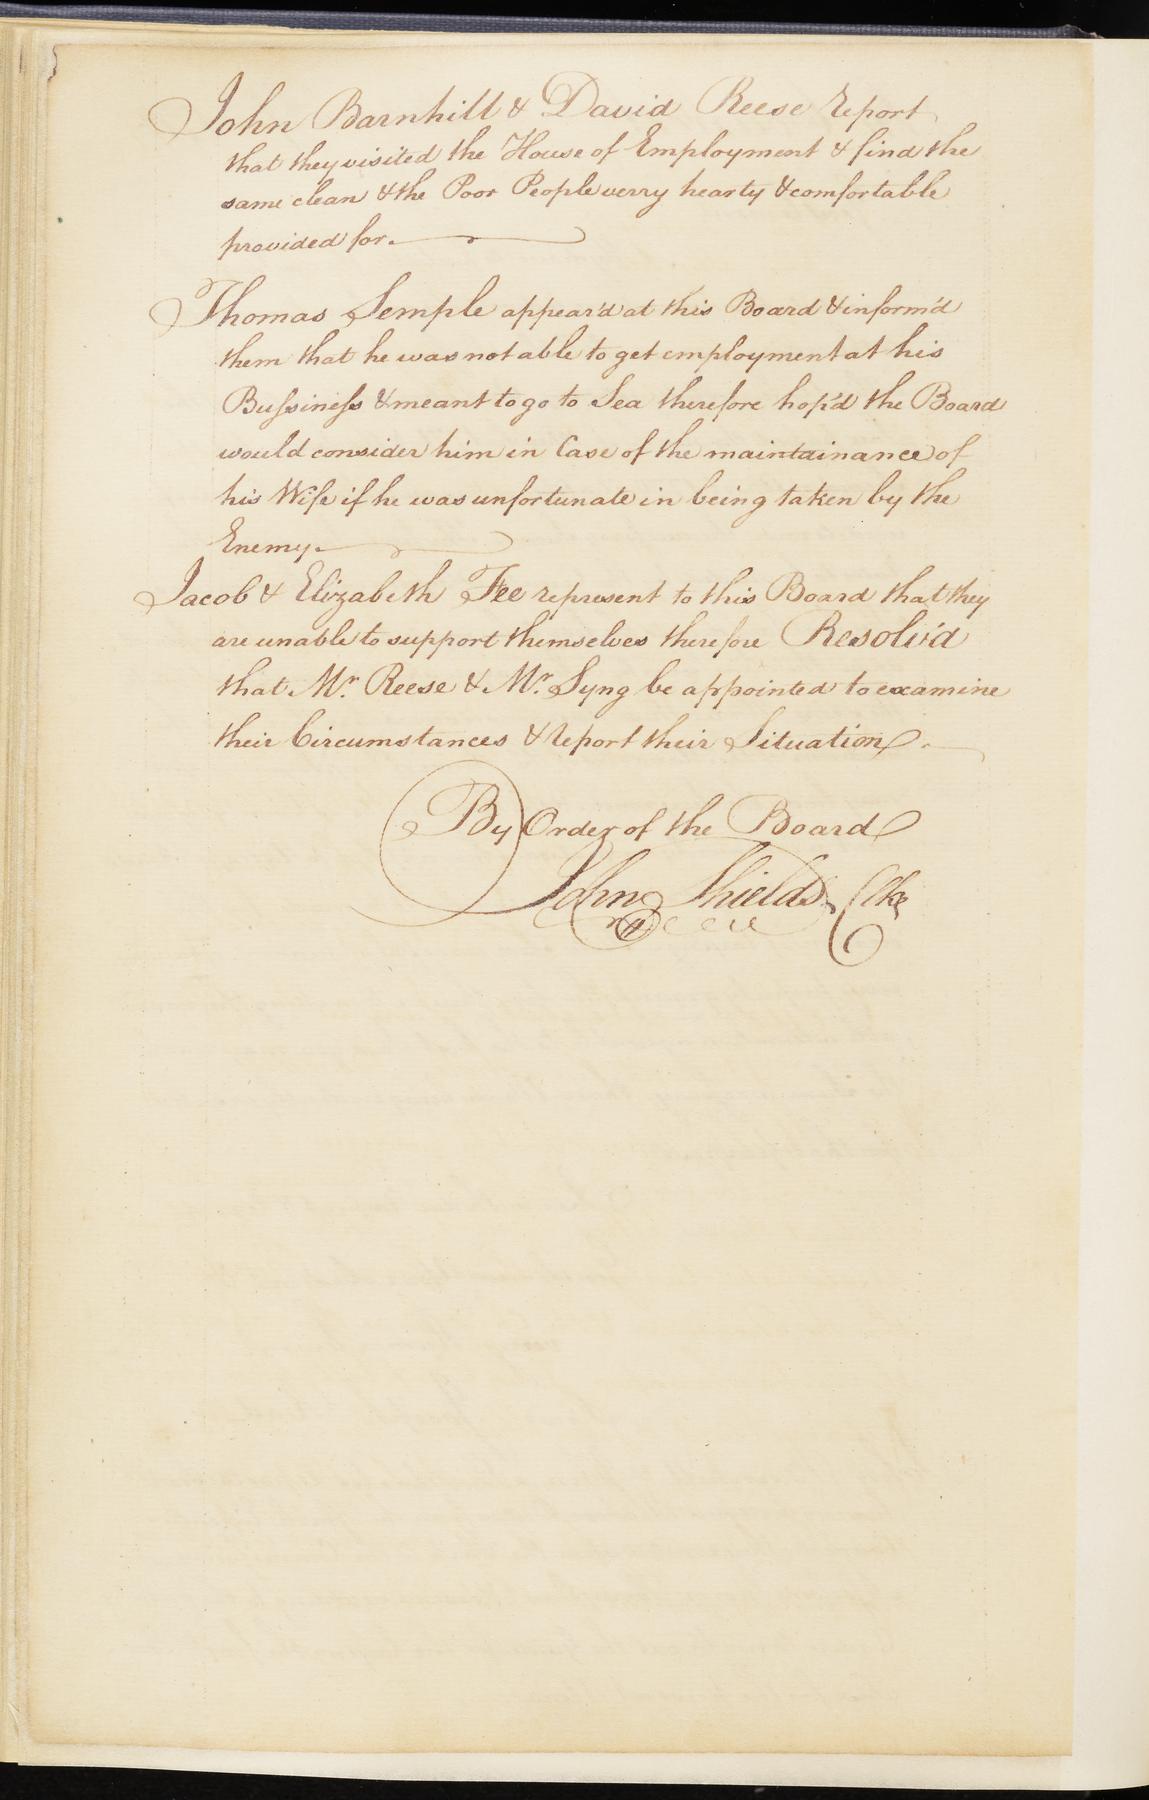 John Barnhill & David Reese report
that they visited the House of Employment & find the
same clean & the Poor People verry hearty & comfortable
provided for.
Thomas Semple appear'd at this Board & inform'd
them that he was not able to get employment at his
Bussiness & meant to go to Sea therefore hop'd the Board
would consider him in Case of the maintainance of
his Wife if he was unfortunate in being taken by the
Enemy.
Jacob & Elizabeth Fee represent to this Board that they
are unable to support themselves therefore Resolv'd
that Mr. Reese & Mr. Syng be appointed to examine
their Circumstances & report their Situation.
By Order of the Board
John Shields Clk